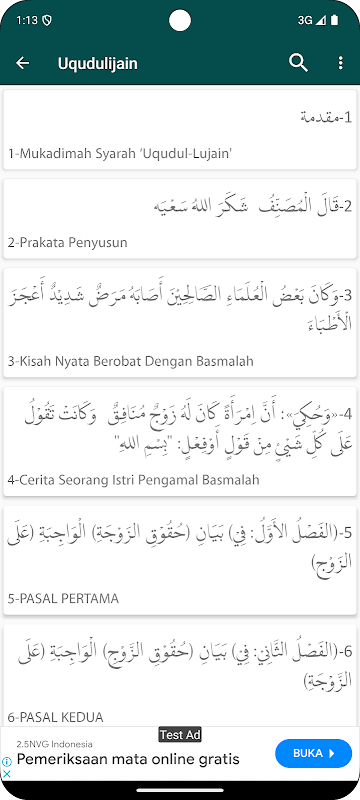 1:13
3G
Uqudulijain
1-مقدمة
1-Mukadimah Syarah 'Uqudul-Lujain'
2-قَالَ الْمُصَنِّفُ شَكَرَ اللهُ سَعْيَه
2-Prakata Penyusun
3-وَكَانَ بَعْضُ الْعُلَمَاءِ الصَّالِحِيْنَ أَصَابَهُ مَرَضٌ شَدِيْدٌ أَعْجَزَ
الْأَطْبَاءَ
3-Kisah Nyata Berobat Dengan Basmalah
4-«وَحُكِي»: أَنَّ اِمْرَأَةً كَانَ لَهُ زَوْجٌ مُنَافِقٌ وَكَانَتْ تَقُوْلُ
عَلَى كُلِّ شَيْئٍ مِنْ قَوْلٍ أَوْفِعْلٍ: "بِسْمِ اللهِ"
4-Cerita Seorang Istri Pengamal Basmalah
5-(الفَصْلُ الأَوَّلُ: فِيْ) بَيَانِ (حُقُوْقِ الزَّوْجَةِ) الْوَاجِبَةِ (عَلَى
الزَوْجِ)
5-PASAL PERTAMA
6-(الفَصْلُ الثَّانِي: فِي) بَيَانِ (حُقُوْقِ الزَّوْجِ) الْوَاجِبَةِ (عَلَى
الزَّوْجَةِ)
6-PASAL KEDUA
Test Ad
2.5NVG Indonesia
Pemeriksaan mata online gratis
BUKA